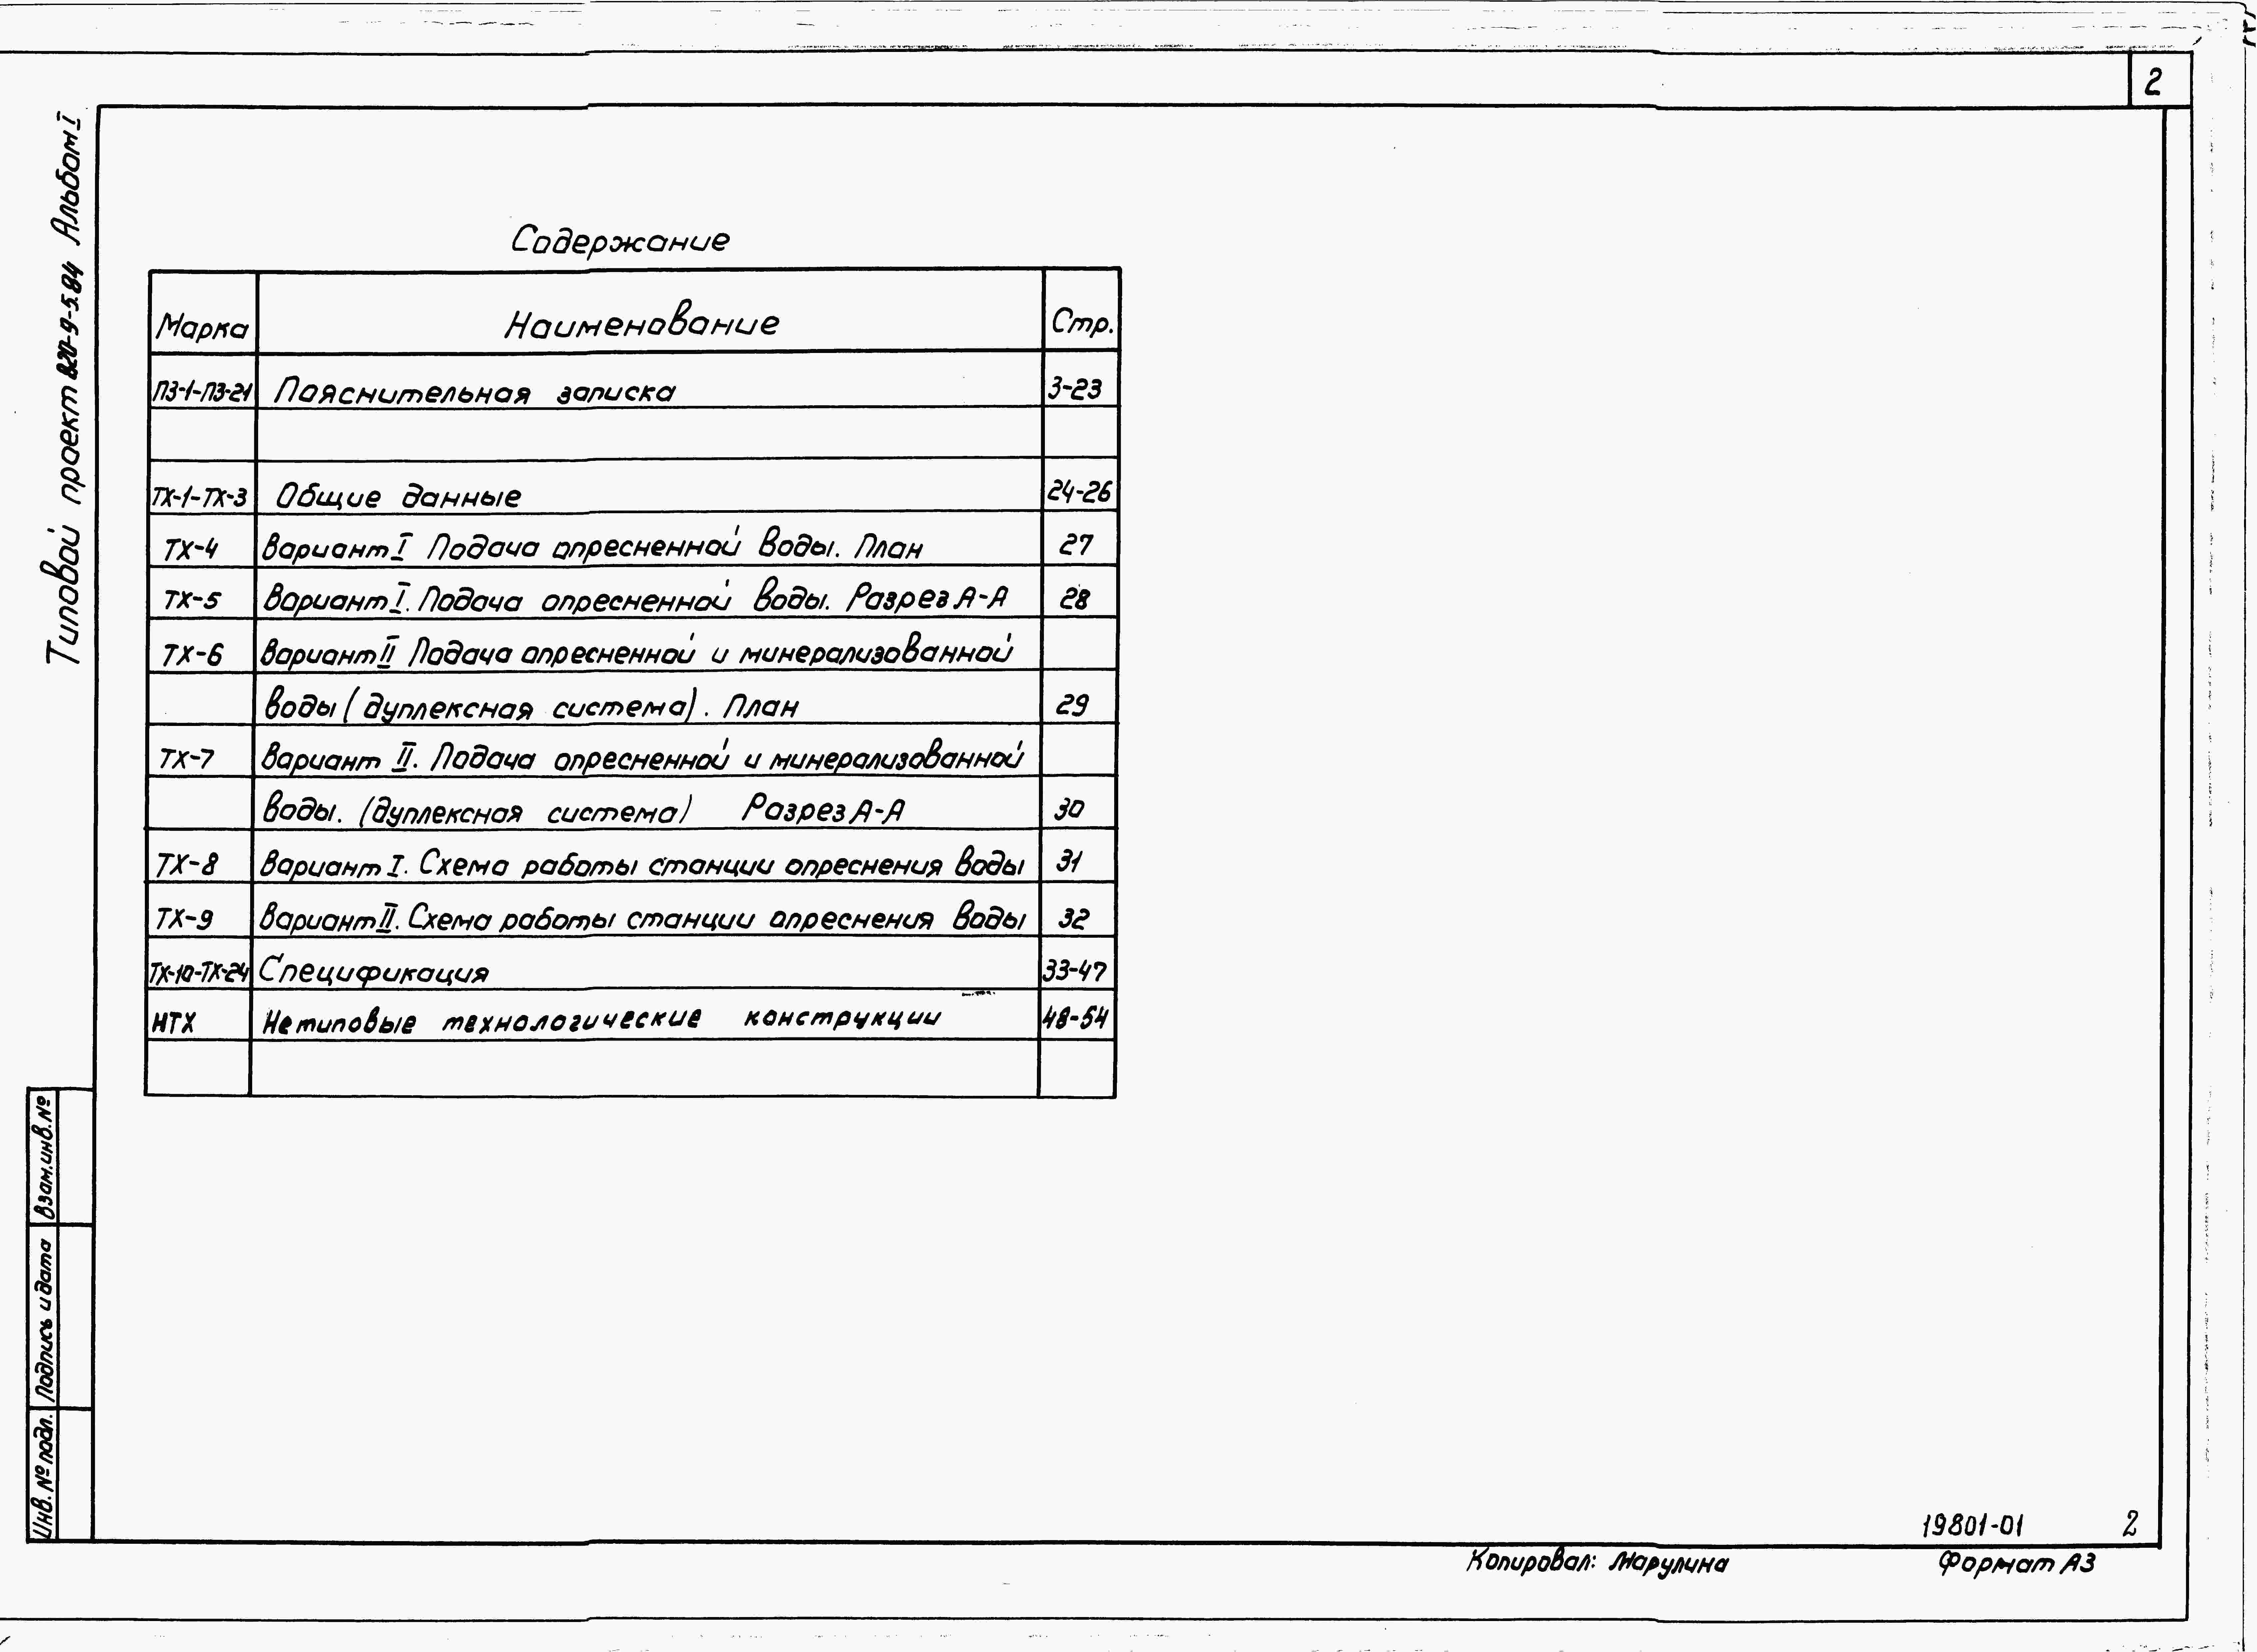 2
Типовой проект 820-9-5.84 Альбом I
Содержание
Марка Наименование Стр.
ПЗ-1-ПЗ-21 Пояснительная записка 3-23
ТХ-1-ТХ-3 Общие данные 24-26
ТХ-4 Вариант I Подача опресненной воды. План 27
ТХ-5 Вариант I. Подача опресненной воды. Разрез А-А 28
ТХ-6 Вариант II Подача опресненной и минерализованной
воды (дуплексная система). План 29
ТХ-7 Вариант II. Подача опресненной и минерализованной
воды. (дуплексная система) Разрез А-А 30
ТХ-8 Вариант I. Схема работы станции опреснения воды 31
ТХ-9 Вариант II. Схема работы станции опреснения воды 32
ТХ-10-ТХ-24 Спецификация 33-47
НТХ Нетиповые технологические конструкции 48-54
Взам.инв.№
Подпись и дата
Инв. № подл.
19801-01 2
Копировал: Марулина Формат А3